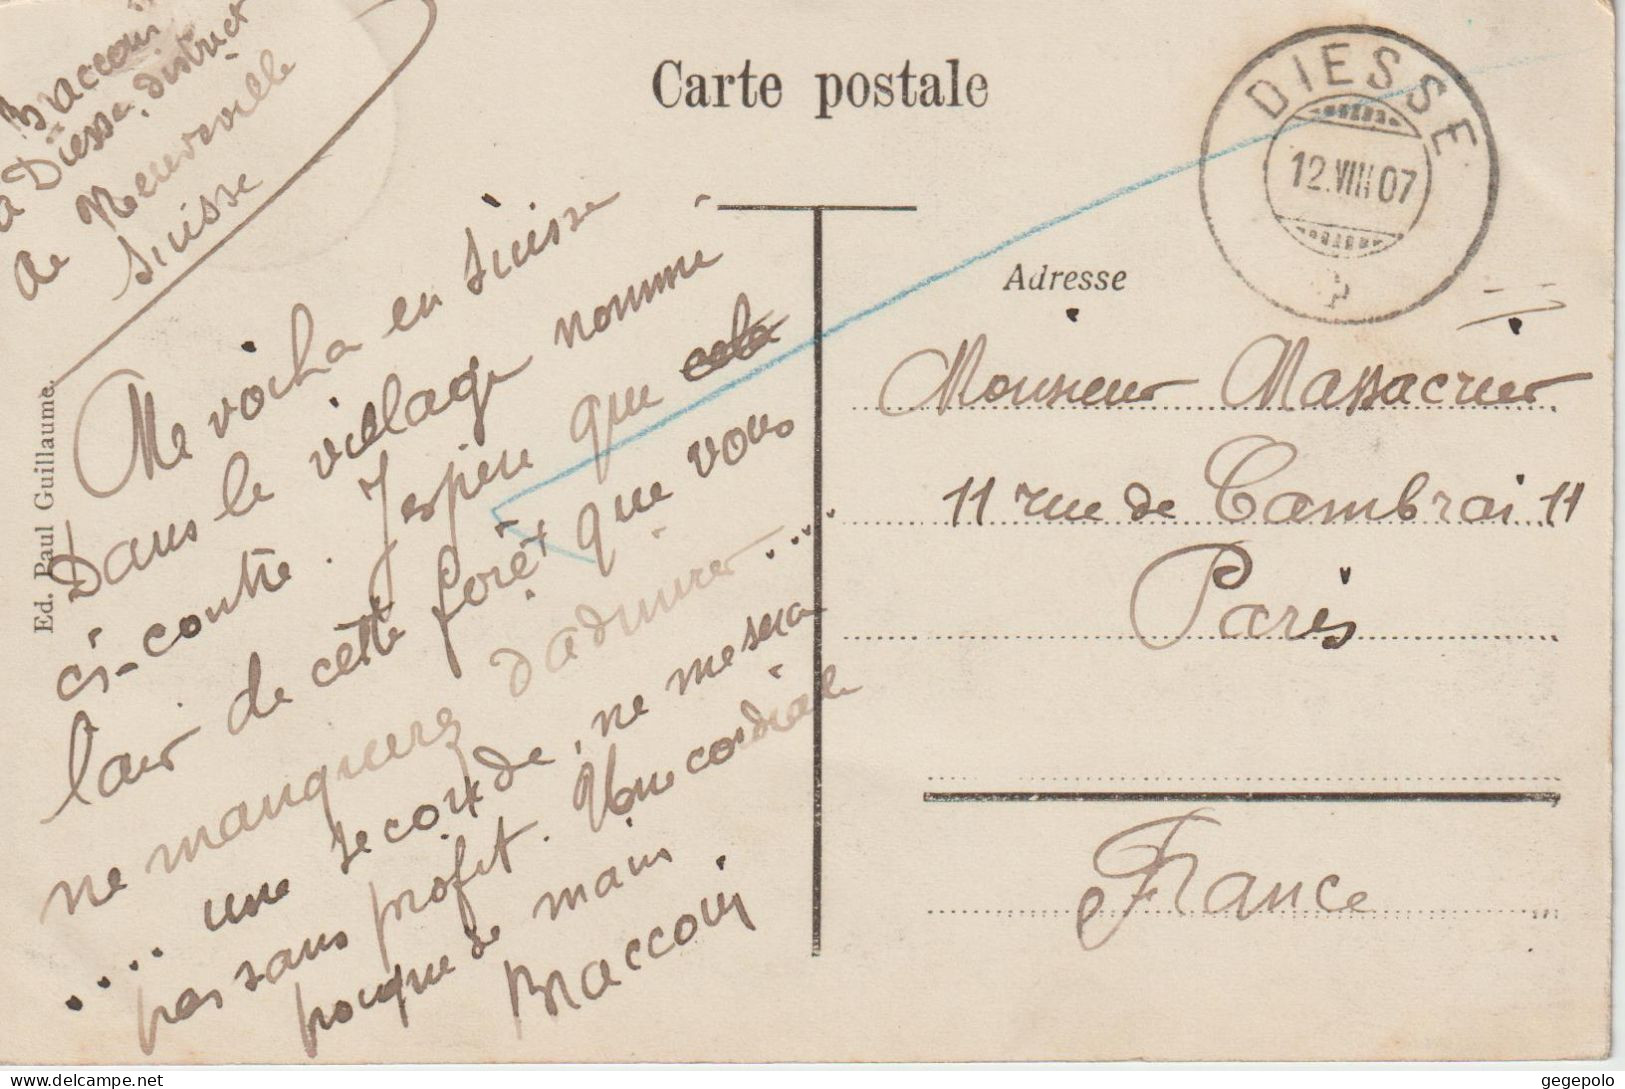 Bracconi
à Diesse, district
de Neuveville
Suisse
Carte postale
DIESSE
12.VIII 07
Adresse
Ed. Paul Guillaume.
Me voila en Suisse
Dans le village nommé
ci-contre. J'espère que cela
l'air de cette forêt que vous
ne manquerez d'admirer....
.... une seconde, ne me sera
pas sans profit. Une cordiale
poignée de main
Bracconi
Monsieur Massacrier
11 rue de Cambrai 11
Paris
France
gegepolo